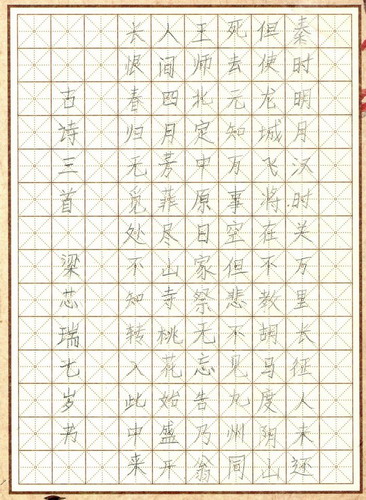 秦时明月汉时关万里长征人未还
但使龙城飞将在不教胡马度阴山
死去元知万事空但悲不见九州同
王师北定中原日家祭无忘告乃翁
人间四月芳菲尽山寺桃花始盛开
长恨春归无觅处不知转入此中来
古诗三首 梁芯瑞七岁书